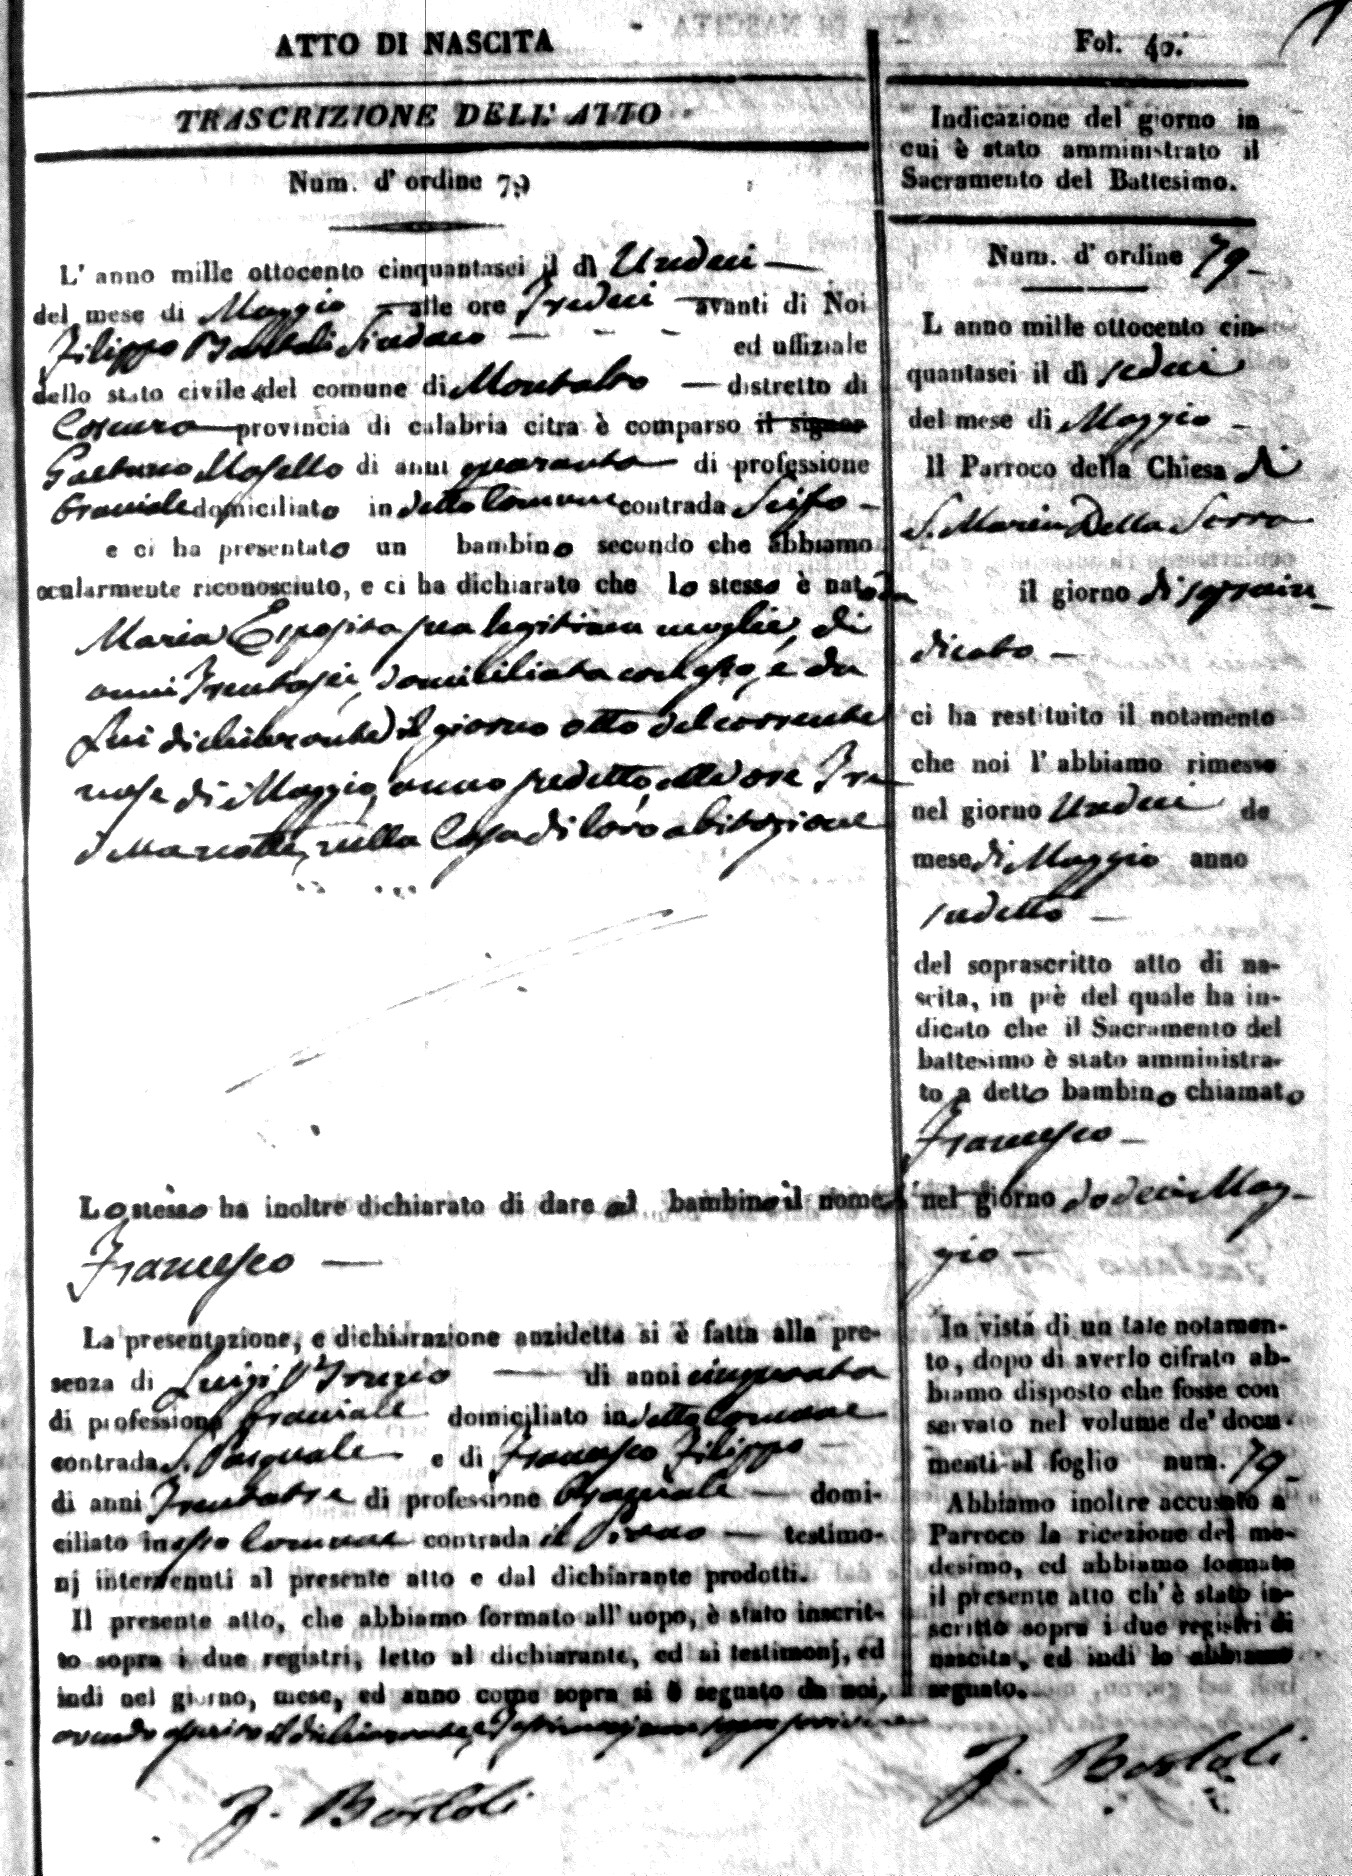 ATTO DI NASCITA
TRASCRIZIONE DELL' ATTO
Num. d' ordine 79
L' anno mille ottocento cinquantasei il dì Undeci —
del mese di Maggio — alle ore Tredeci — avanti di Noi
Filippo Sindaco — ed uffiziale
dello stato civile del comune di Montalto — distretto di
Cosenza provincia di calabria citra è comparso il signor
Gaetano di anni quaranta di professione
Braciale domiciliato in detto Comune contrada —
e ci ha presentato un bambino secondo che abbiamo
ocularmente riconosciuto, e ci ha dichiarato che lo stesso è nato da
Maria Esposito sua legittima moglie, di
anni Trentasei, domiciliata con esso, e da
Lui dichiarante il giorno otto del corrente
mese di Maggio, anno sudetto, alle ore Tre
della notte, nella Casa di loro abitazione
Lo stesso ha inoltre dichiarato di dare al bambino il nome di
Francesco —
La presentazione, e dichiarazione anzidetta si è fatta alla pre-
senza di Luigi — di anni cinquanta
di professione Braciale domiciliato in detto Comune
contrada S. Pasquale e di Francesco Filippo —
di anni Trentatre di professione — domi-
ciliato in esso Comune contrada il — testimo-
nj intervenuti al presente atto e dal dichiarante prodotti.
Il presente atto, che abbiamo formato all' uopo, è stato inscrit-
to sopra i due registri, letto al dichiarante, ed ai testimonj, ed
indi nel giorno, mese, ed anno come sopra si è segnato da noi,
avendo il dichiarante, e Testimonj non saper scrivere
F. Bartoli
Fol. 40.
Indicazione del giorno in
cui è stato amministrato il
Sacramento del Battesimo.
Num. d' ordine 79 —
L anno mille ottocento cin-
quantasei il dì sedeci
del mese di Maggio —
Il Parroco della Chiesa di
S. Maria Della Serra
il giorno di soprain
dicato —
ci ha restituito il notamento
che noi l' abbiamo rimesso
nel giorno Undeci de
mese di Maggio anno
sudetto —
del soprascritto atto di na-
scita, in piè del quale ha in-
dicato che il Sacramento del
battesimo è stato amministra-
to a detto bambino chiamato
Francesco —
nel giorno dodeci Mag-
gio —
In vista di un tale notamen-
to, dopo di averlo cifrato ab-
biamo disposto che fosse con
servato nel volume de' docu-
menti al foglio num. 79 —
Abbiamo inoltre accusato a
Parroco la ricezione del me-
desimo, ed abbiamo formato
il presente atto ch' è stato in-
scritto sopra i due registri di
nascita, ed indi lo abbiamo
segnato.
F. Bartoli